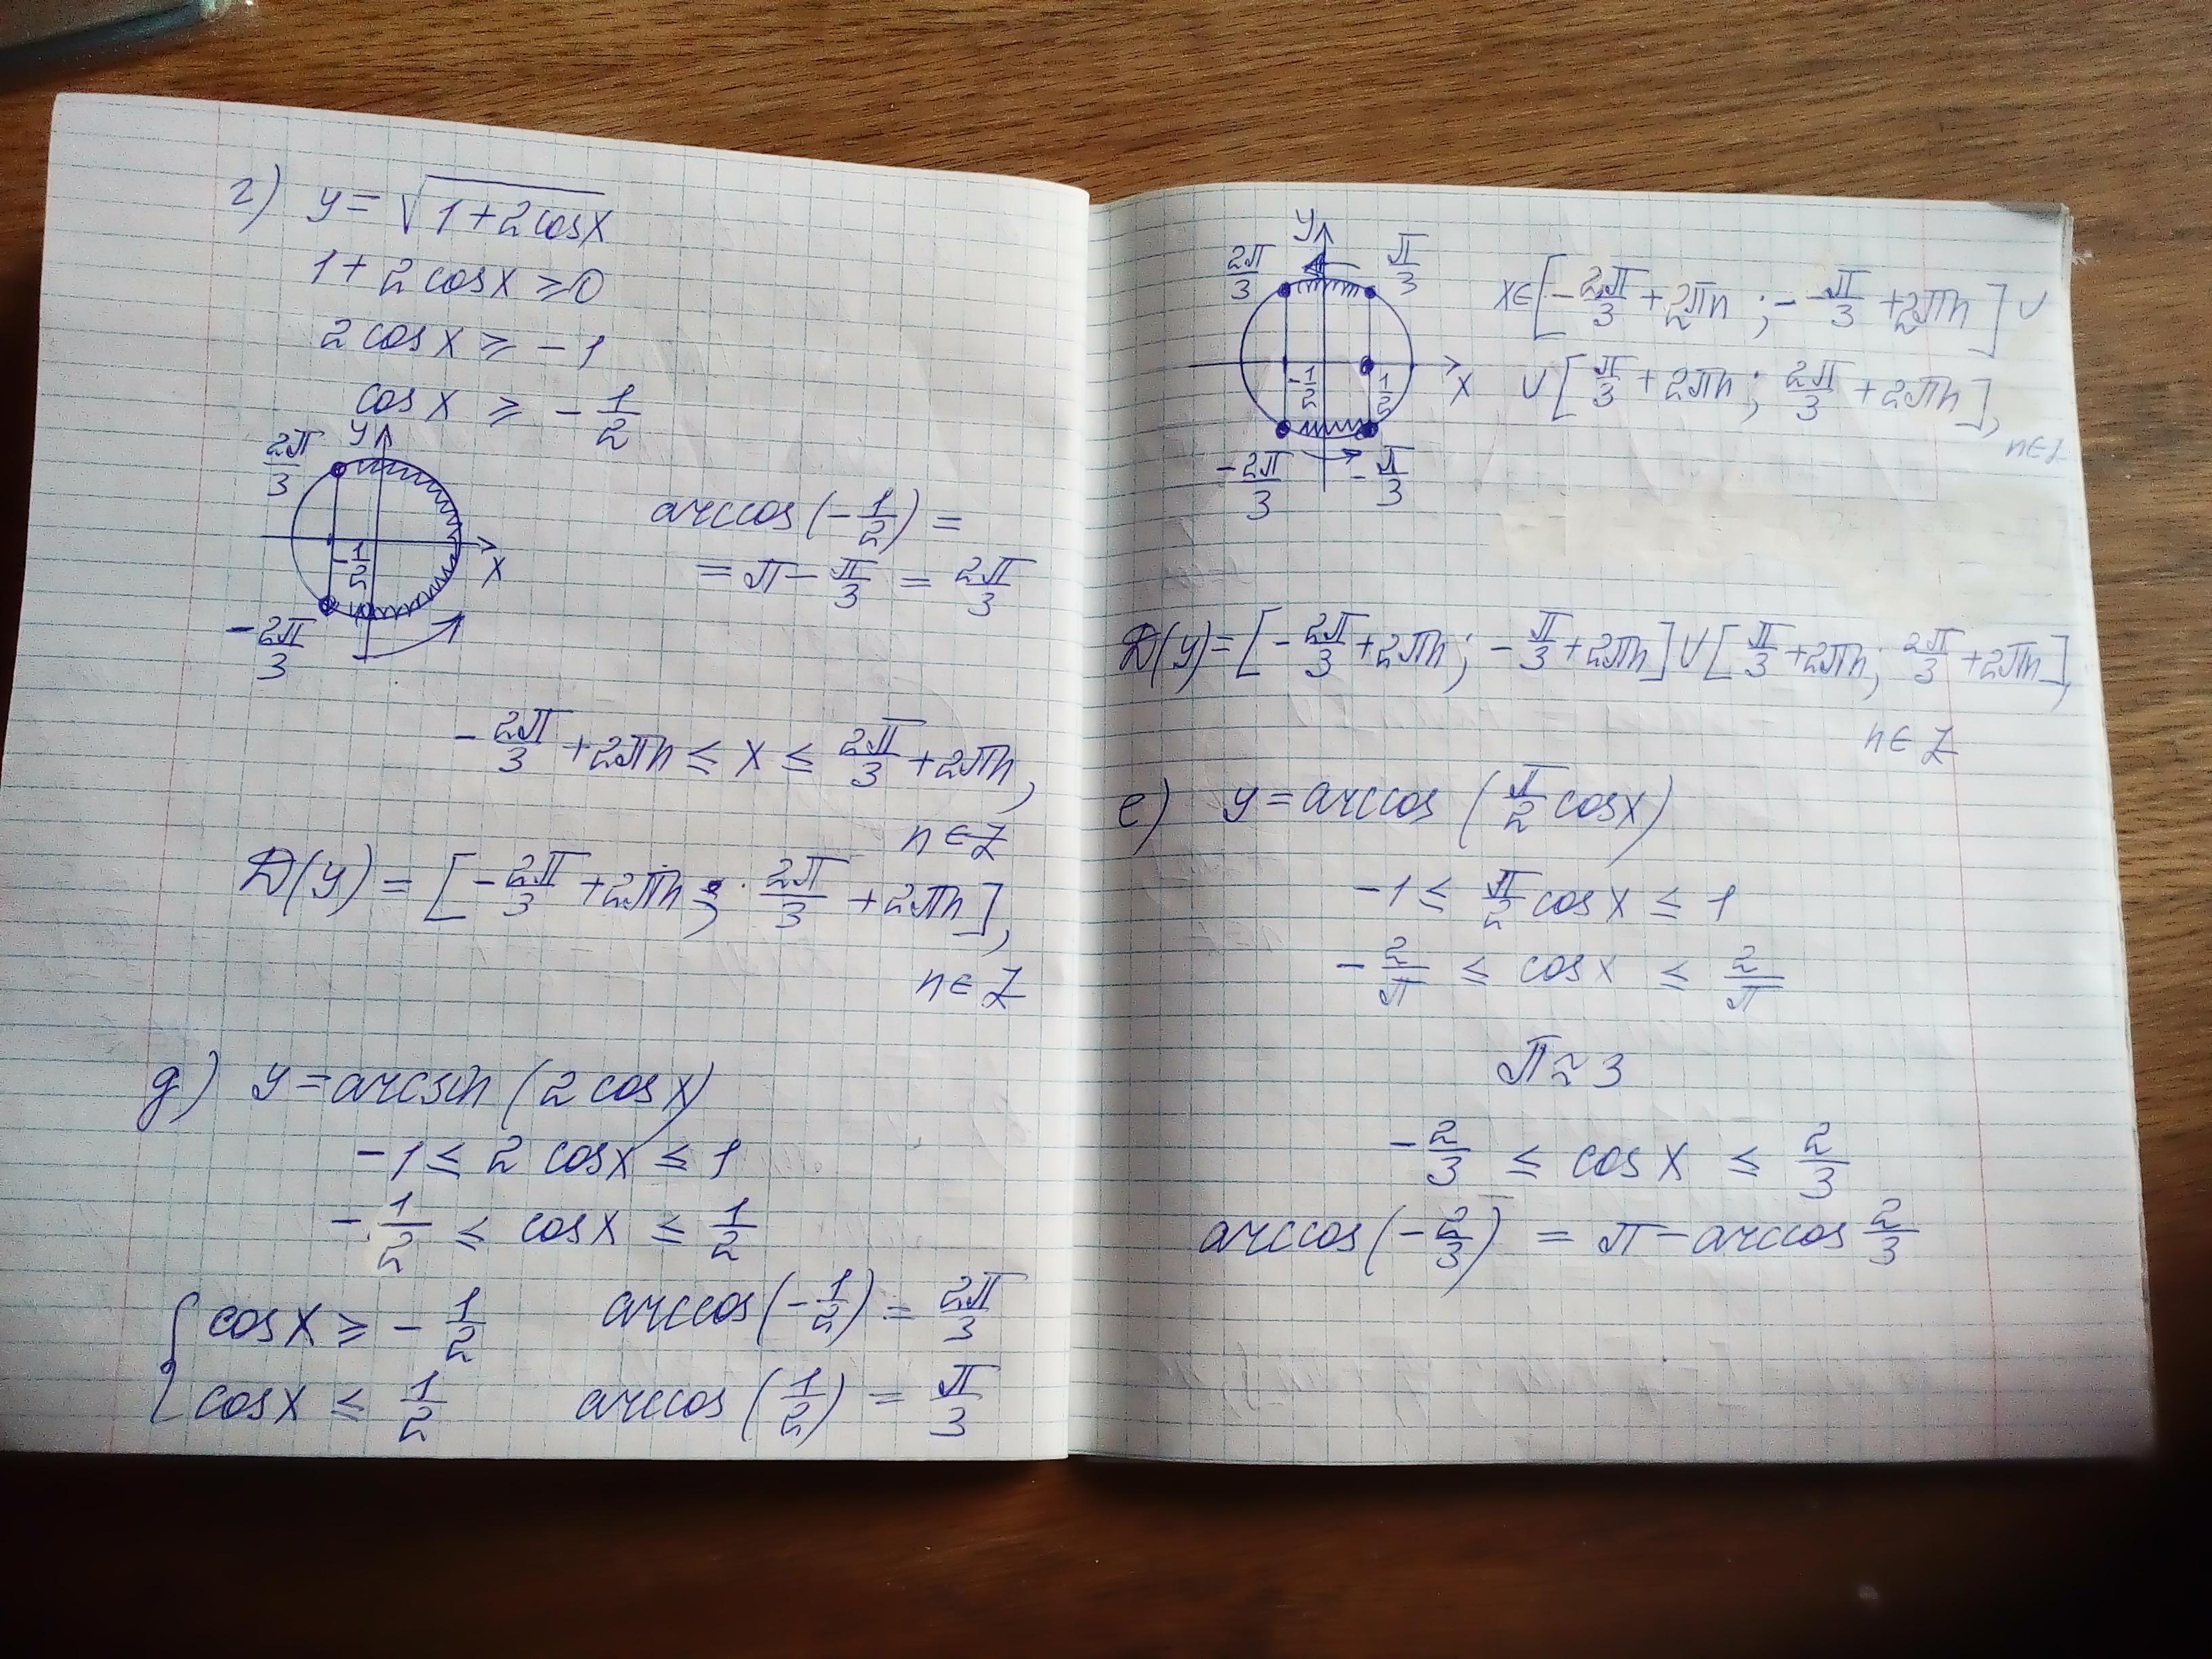 г) y = √(1 + 2 cos x)
1 + 2 cos x ≥ 0
2 cos x ≥ - 1
cos x ≥ - 1/2
y
2π/3
- 1/2
x
- 2π/3
arccos (- 1/2) =
= π - π/3 = 2π/3
- 2π/3 + 2πn ≤ x ≤ 2π/3 + 2πn,
n ∈ Z
D(y) = [- 2π/3 + 2πn ; 2π/3 + 2πn],
n ∈ Z
g) y = arcsin (2 cos x)
- 1 ≤ 2 cos x ≤ 1
- 1/2 ≤ cos x ≤ 1/2
{ cos x ≥ - 1/2 arccos (- 1/2) = 2π/3
cos x ≤ 1/2 arccos (1/2) = π/3
y
2π/3 π/3
- 1/2 1/2 x
- 2π/3 - π/3
x ∈ [- 2π/3 + 2πn ; - π/3 + 2πn] ∪
∪ [π/3 + 2πn ; 2π/3 + 2πn],
n ∈ Z
D(y) = [- 2π/3 + 2πn ; - π/3 + 2πn] ∪ [π/3 + 2πn ; 2π/3 + 2πn],
n ∈ Z
e) y = arccos (π/2 cos x)
- 1 ≤ π/2 cos x ≤ 1
- 2/π ≤ cos x ≤ 2/π
π ≈ 3
- 2/3 ≤ cos x ≤ 2/3
arccos (- 2/3) = π - arccos 2/3